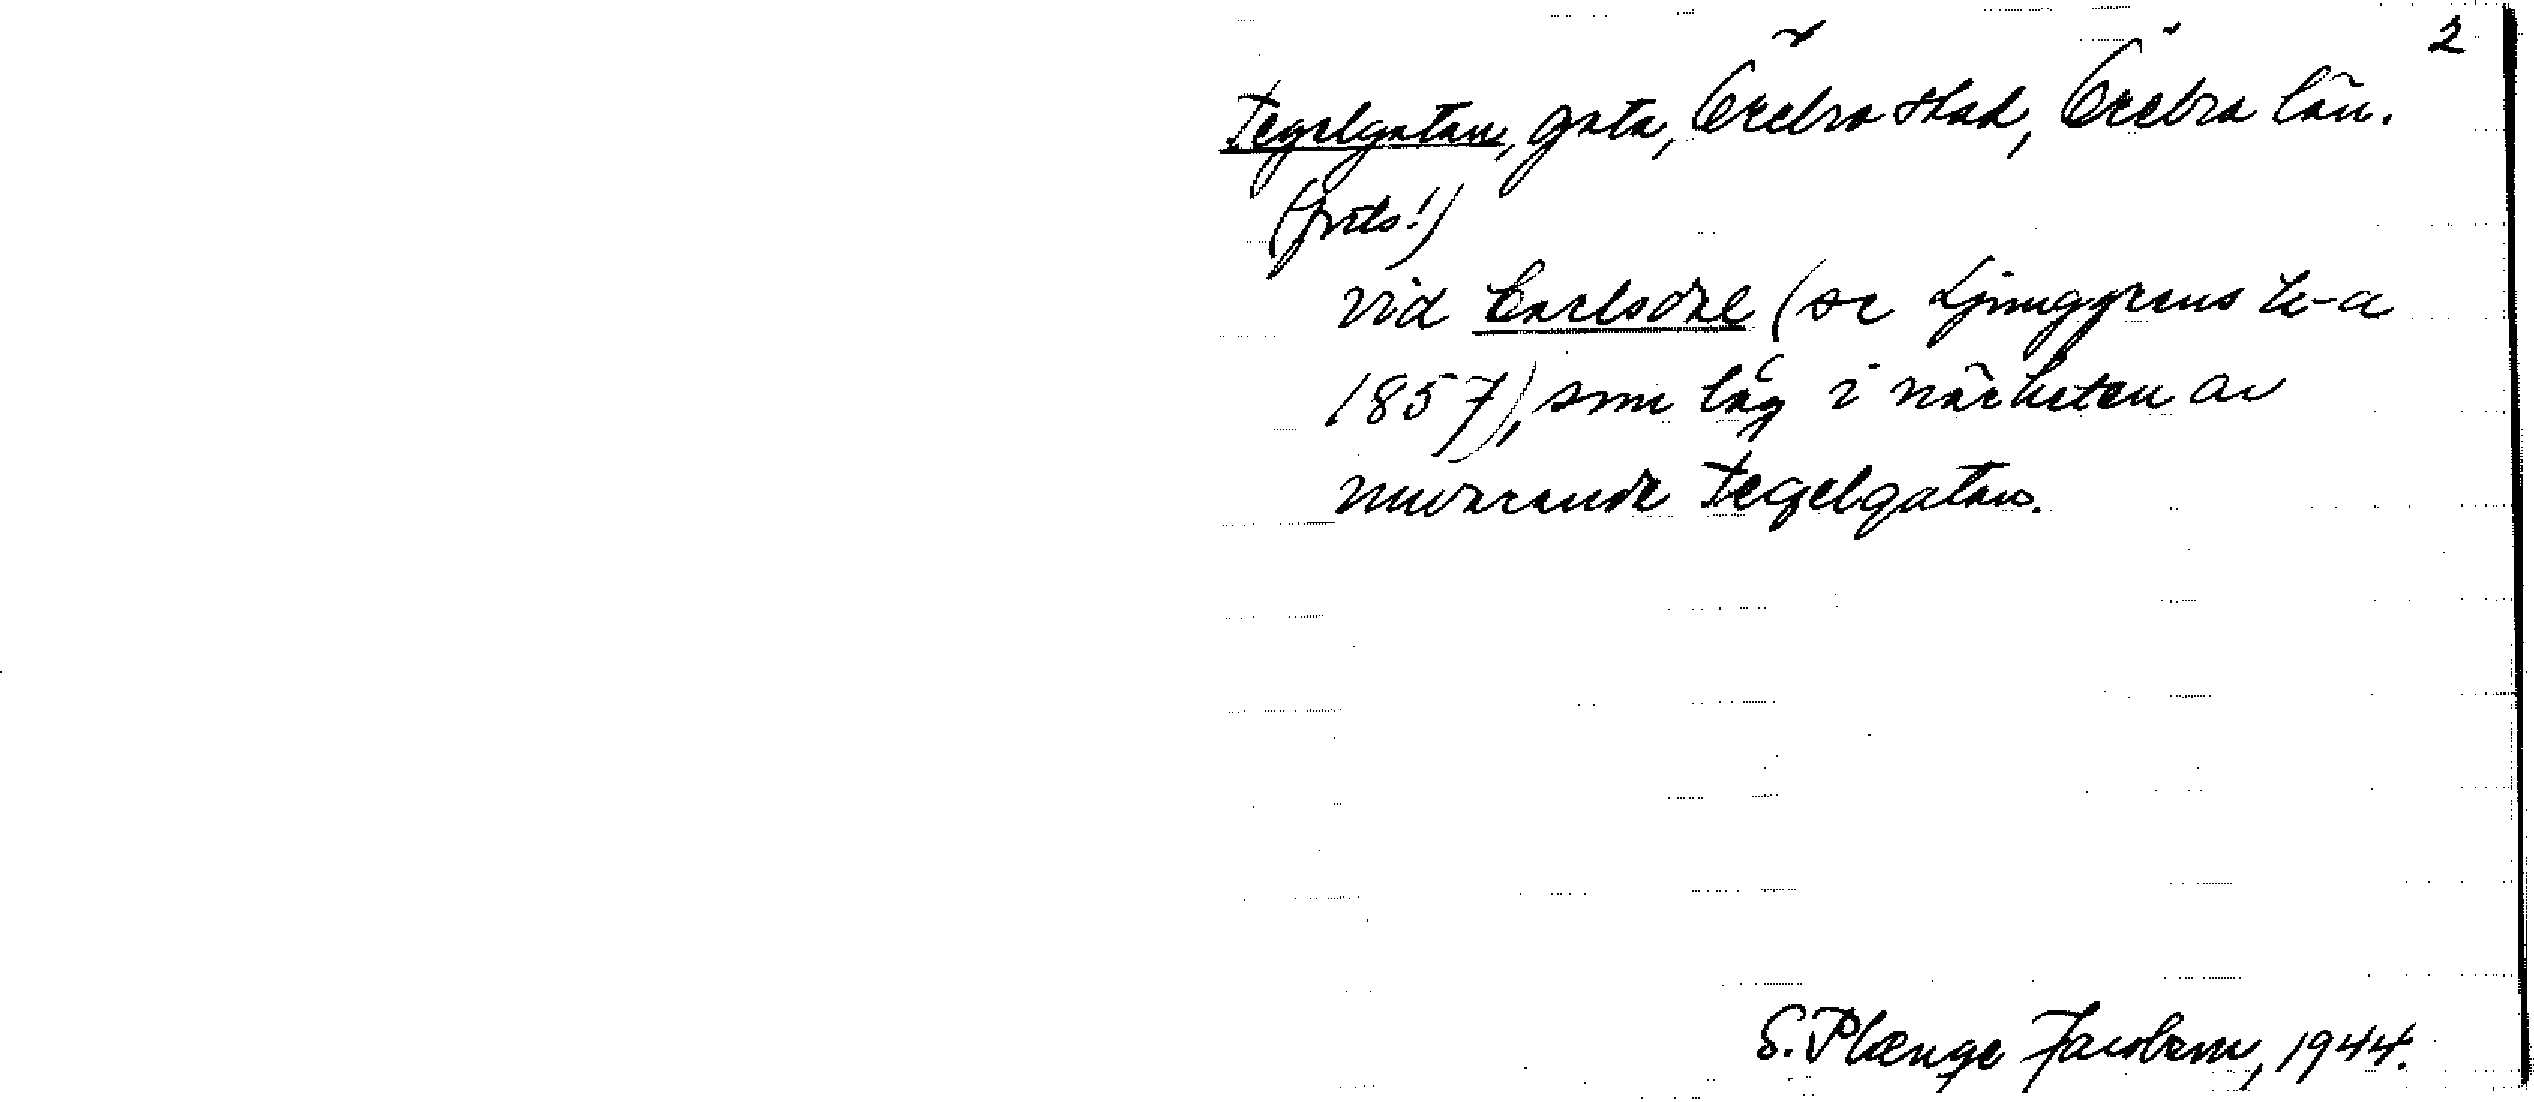 2
Tegelgatan, gata, Örebro stad, Örebro län.
(forts!)
vid Carlsdal (se Ljunggrens k-a
1857), som låg i närheten av
nuvarande Tegelgatan.
S. Plænge Jacobson, 1944.